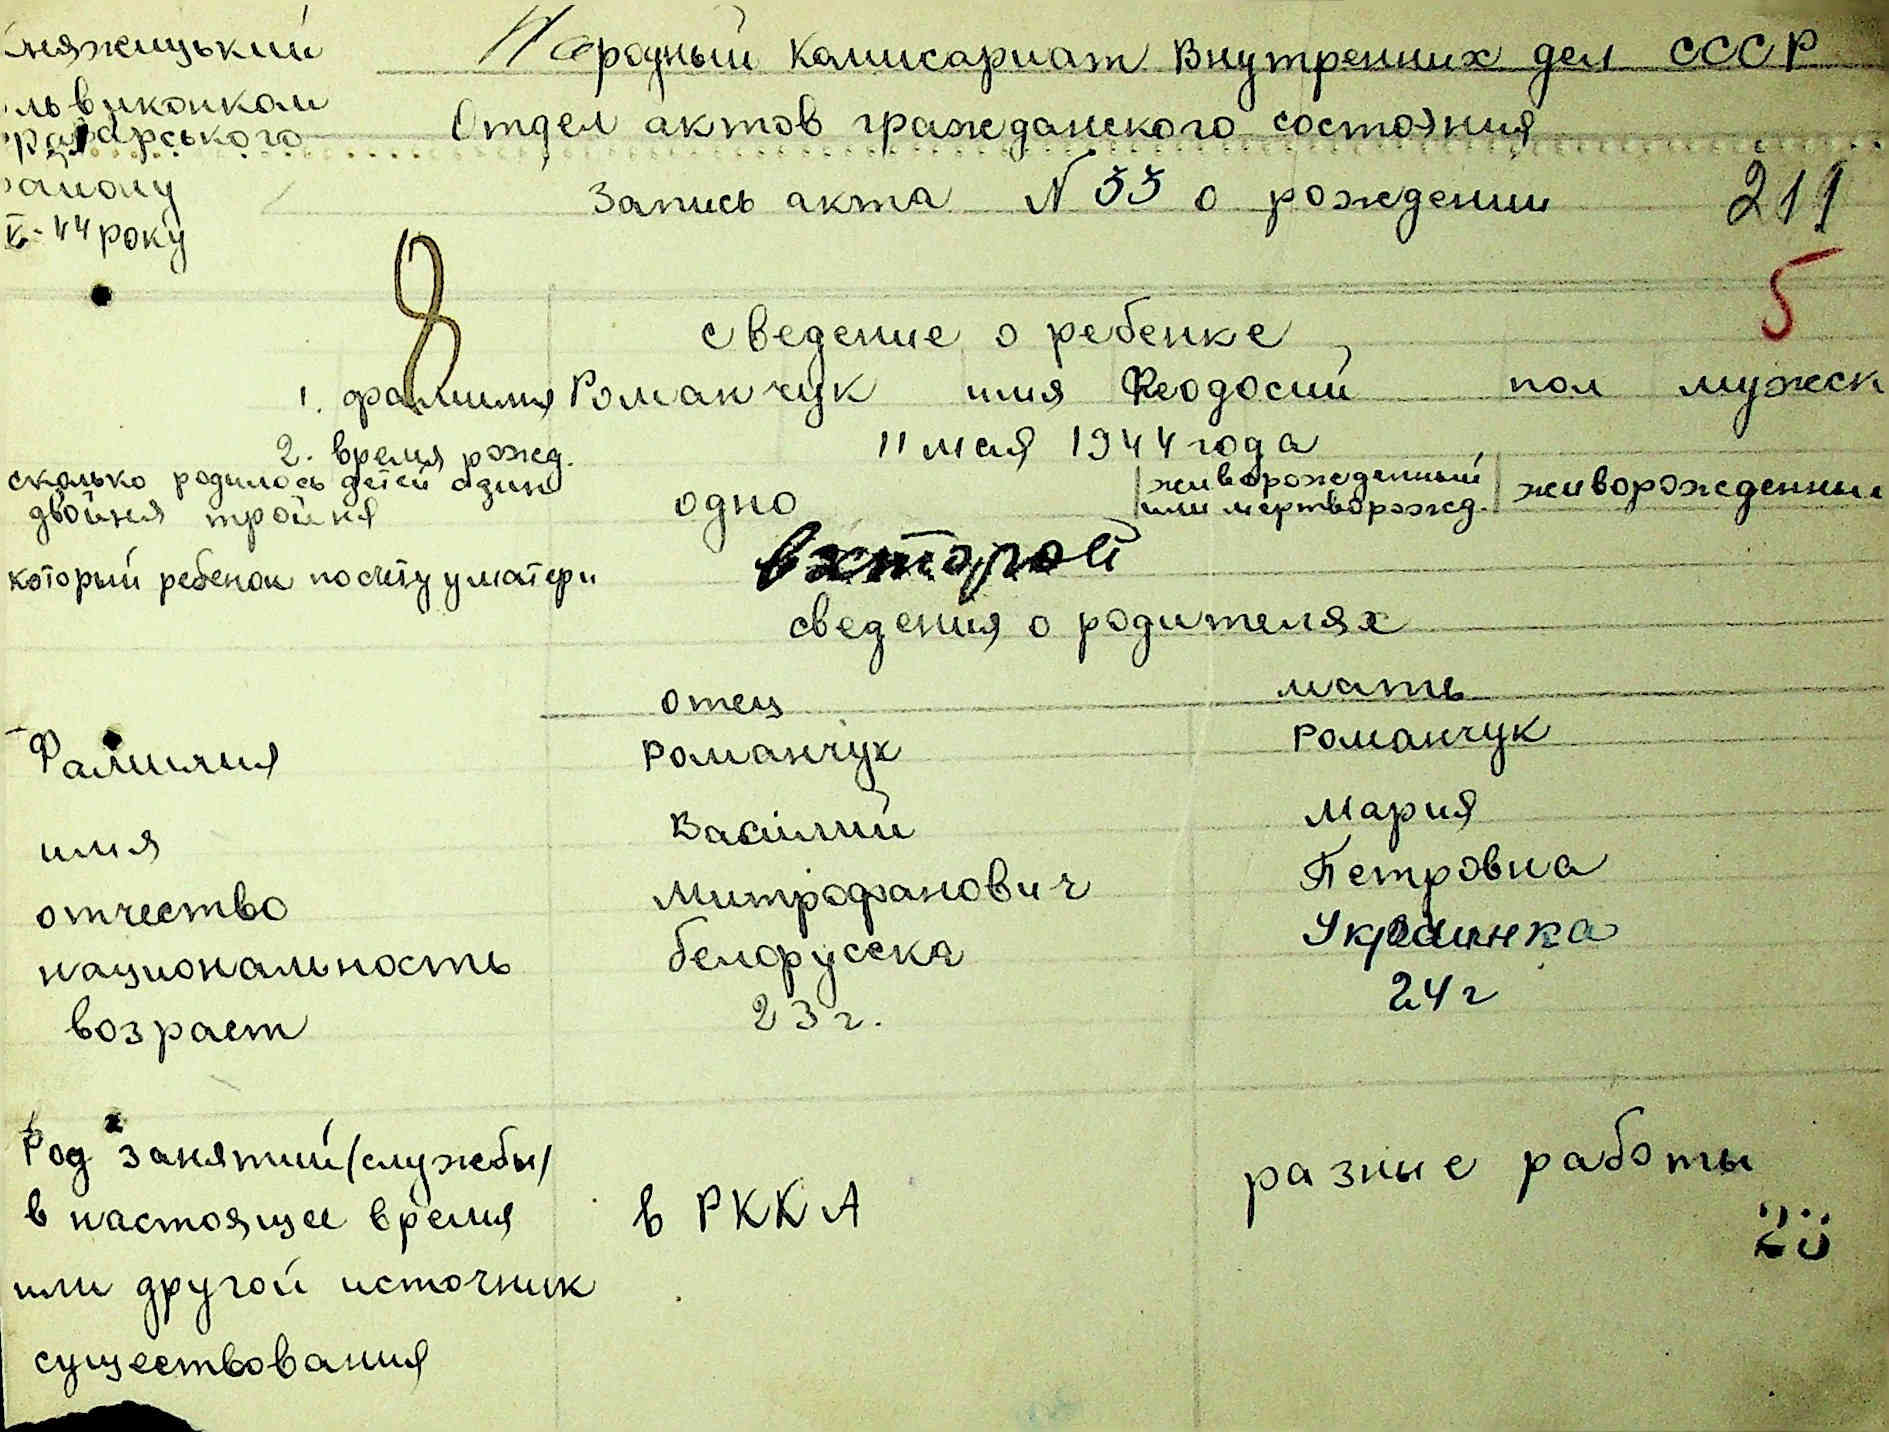 няжицький
Народный комисариат Внутренних дел СССР
львиконком
Отдел актов гражданского состояния
району
Запись акта N 33 о рождении 211
44 року
5
8
сведение о ребенке
1. фамилия Романчук имя Феодосий пол мужск
2. время рожд. 11 мая 1944 года
сколько родилось детей один
двойня тройня одно живорожденный или мертворожд. живорожденный
который ребенок по счету у матери второй
сведения о родителях
отец мать
Фамилия Романчук Романчук
имя Василий Мария
отчество Митрофанович Петровна
национальность белорусска Украинка
возраст 23 г. 24 г
Род занятий /службы/ разные работы
в настоящее время в РККА
или другой источник
существования